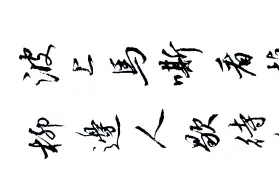 波上馬嘶看
柳邊人歇待